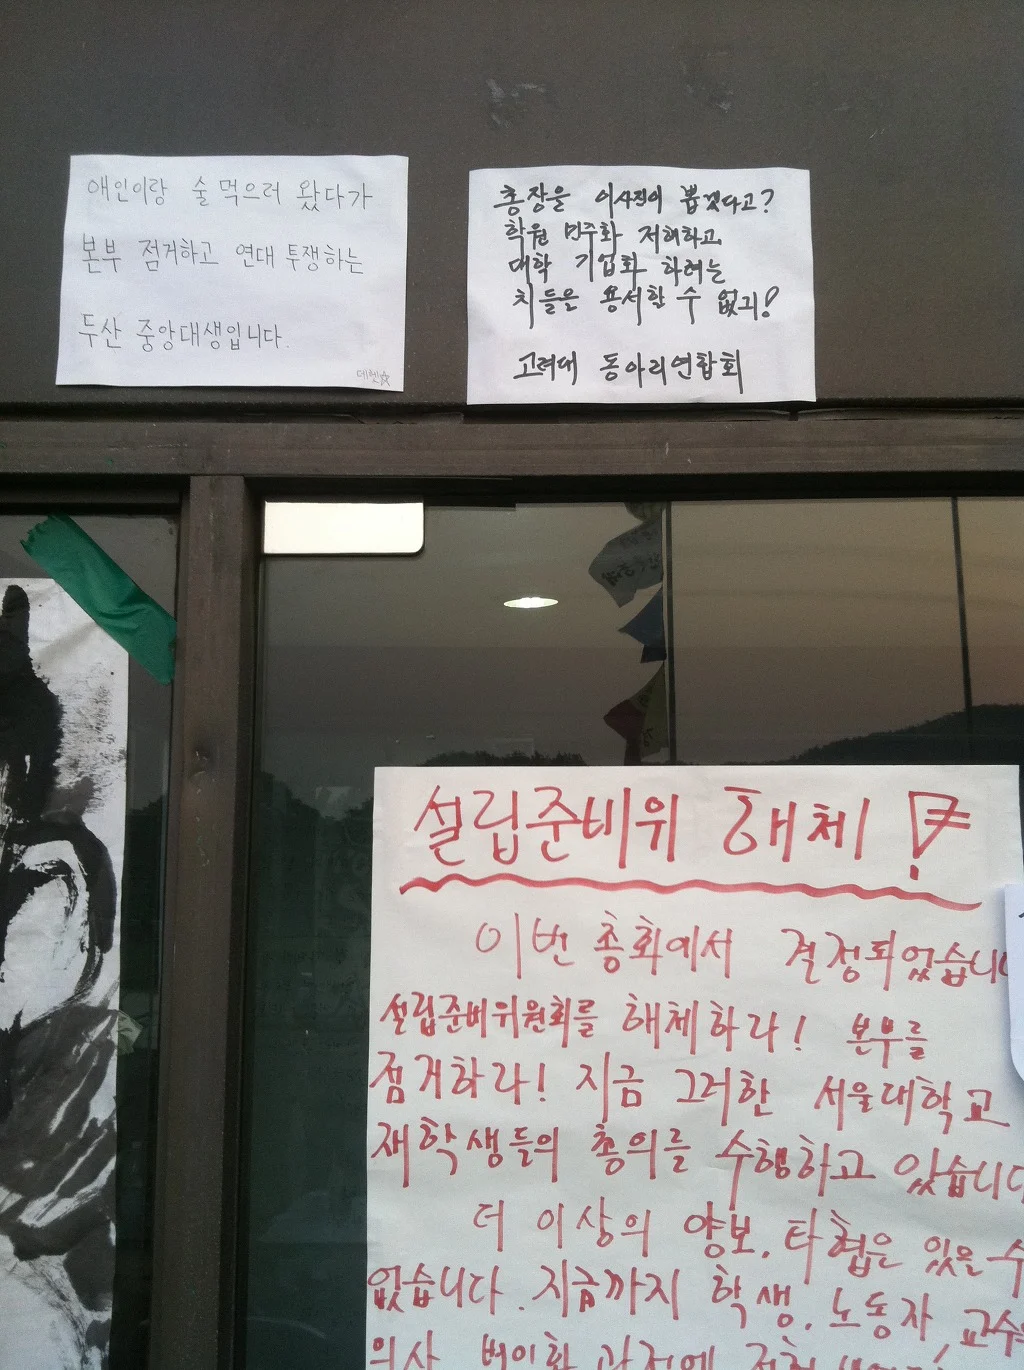 애인이랑 술 먹으러 왔다가
본부 점거하고 연대 투쟁하는
두산 중앙대생입니다.
총장을 이사진이 뽑겠다고?
학원 민주화 저해하고
대학 기업화 하려는
치들은 용서할 수 없긔!
고려대 동아리연합회
설립준비위 해체!
이번 총회에서 결정되었습니
설립준비위원회를 해체하라! 본부를
점거하라! 지금 그러한 서울대학교
재학생들의 총의를 수행하고 있습니다
더 이상의 양보, 타협은 있을 수
없습니다. 지금까지 학생, 노동자, 교수
의사 법인화 과정에 전혀